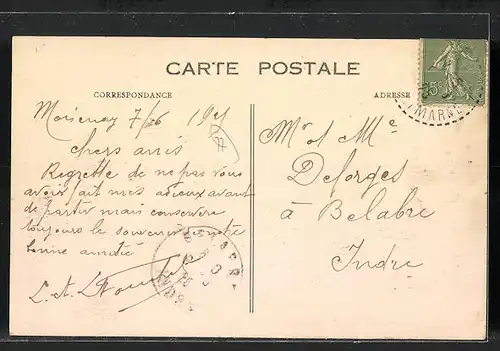 CARTE POSTALE
CORRESPONDANCE
ADRESSE
Moisenay 7/
chers amis
Regrette de ne pas vous
avoir fait mes adieux avant
de partir mais conserve
toujours le souvenir
bonne amitié
Mr et Me
Deforges
à Belabre
Indre
MARNE